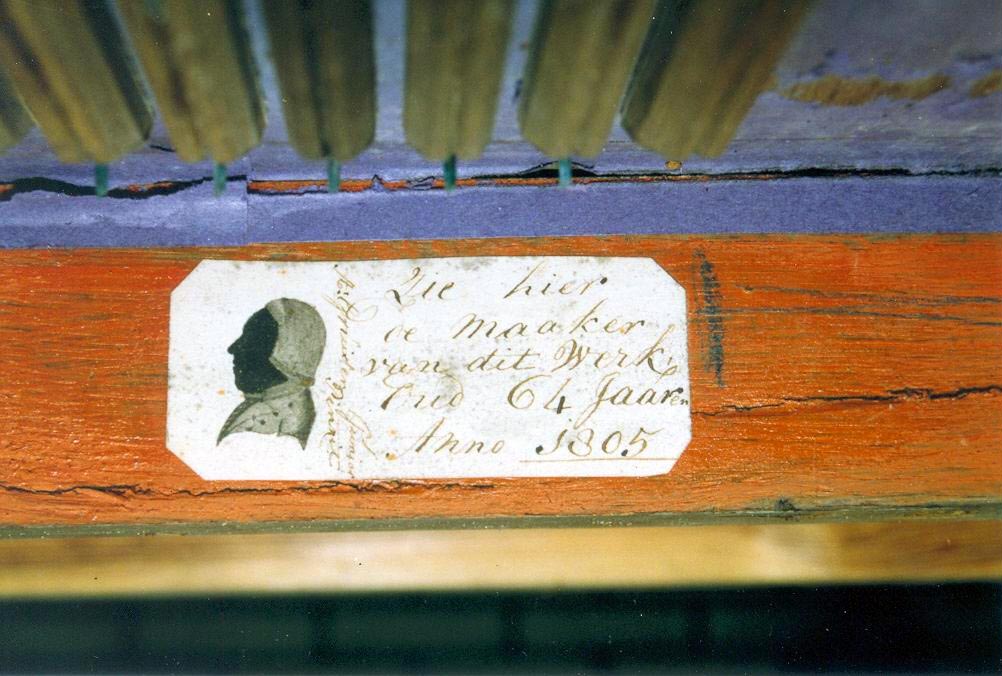 Zie hier
de maaker
van dit Werk,
Oud 64 Jaaren
Anno 1805